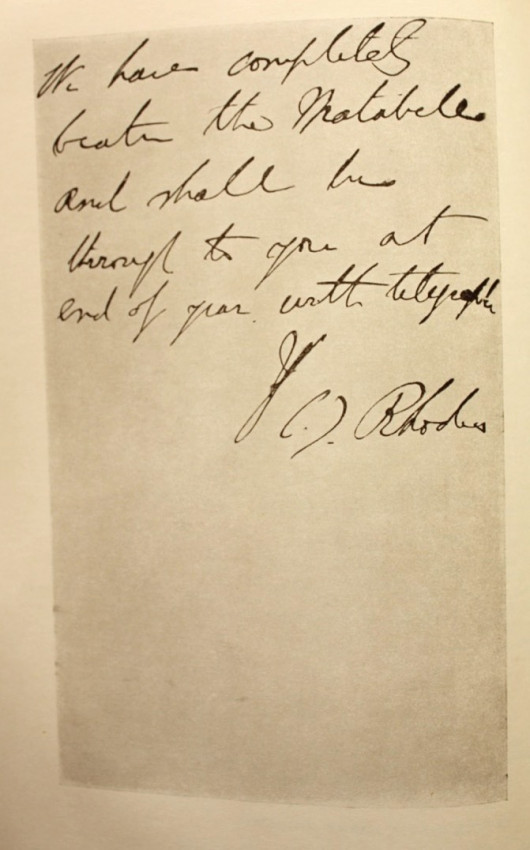 We have completely
beaten the Matabele
and shall be
through to you at
end of year with telegraph
Yr
C J. Rhodes